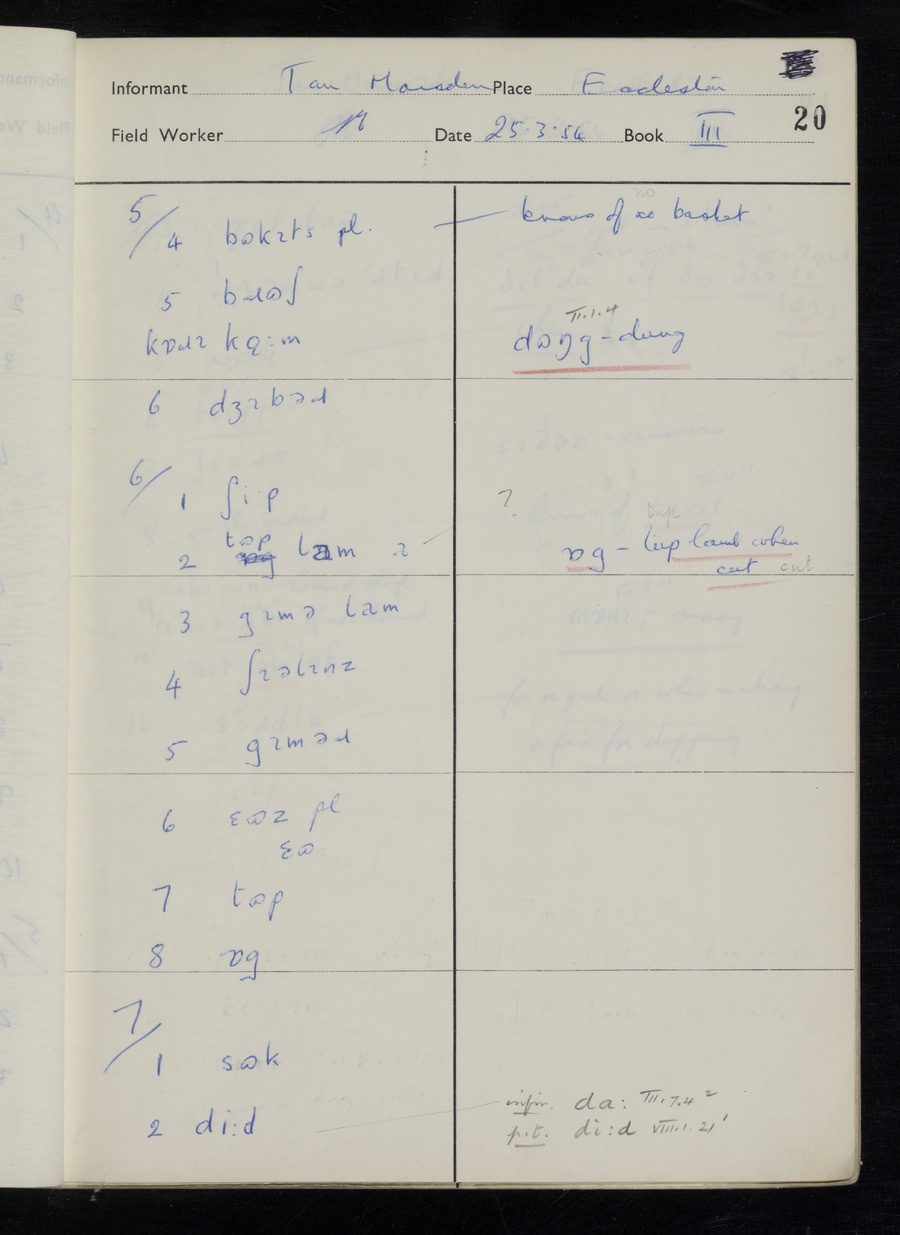 Informant Tan Marsden Place Eccleston
Field Worker Date 25.3.54 Book III 20
5/4 bɷkɪts pl. — knows of no basket
5 bɹɷʃ
kɒɹɪ kɷ̨:m
II.1.4
dɷŋg - dung
6 dʒɪbəɹ
6/1 ʃi·p ?
2 tɷp lam
ɒg - tup lamb when
cut cut
3 gɪmə lam
4 ʃɪəlɪnz
5 gɪməɹ
6 ɛɷz pl
ɛɷ
7 tɷp
8 ɒg
7/1 sɷk
2 di:d
infin. da: III.7.4²
p.t. di:d VIII.1.21¹